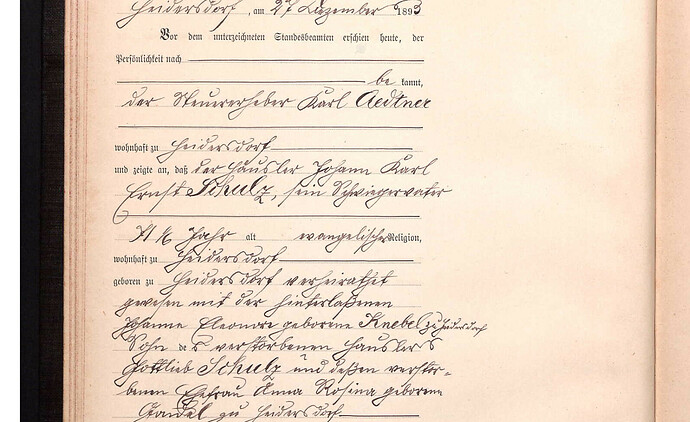 Heidersdorf, am 27 Dezember 1893
Vor dem unterzeichneten Standesbeamten erschien heute, der
Persönlichkeit nach
be kannt,
der Steuererheber Karl Aedtner
wohnhaft zu Heidersdorf
und zeigte an, daß der Häusler Johann Karl
Ernst Schulz, sein Schwiegervater
71 ½ Jahr alt evangelischer Religion,
wohnhaft zu Heidersdorf
geboren zu Heidersdorf verheirathet
gewesen mit der hinterlaßenen
Johanne Eleonore geborene Knebel zu Heidersdorf
Sohn des verstorbenen Häuslers
Gottlieb Schulz und deßen verstor-
benen Ehefrau Anna Rosina geborene
zu Heidersdorf